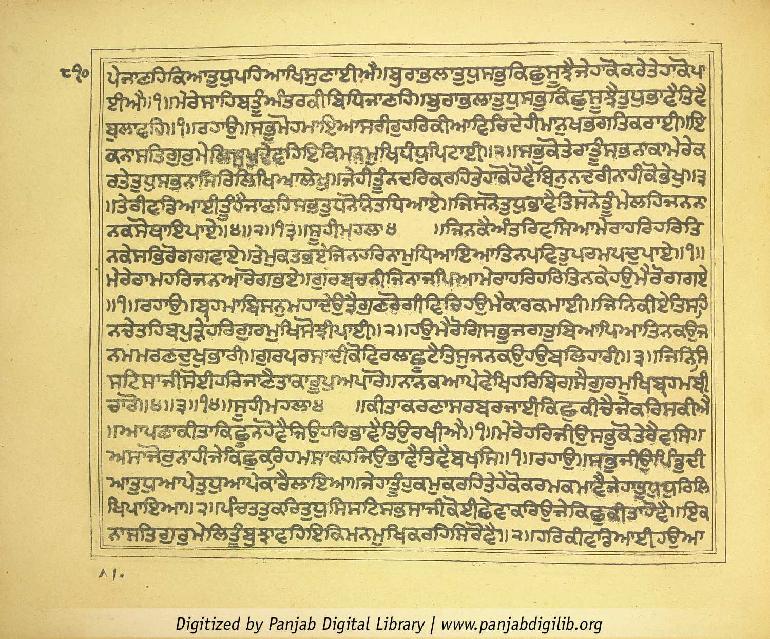 ੮੧੦
ਪੇਜਾਣਹਿਕਿਆਤੁਧੁਪਹਿਆਖਿਸੁਣਾਈਐ॥ਬੁਰਾਭਲਾਤੁਧੁਸਭੁਕਿਛੁਸੂਝੈਜੇਹਾਕੋਕਰੇਤੇਹਾਕੋਪਾ
ਈਐ॥੧॥ਮੇਰੇਸਾਹਿਬਤੂੰਅੰਤਰਕੀਬਿਧਿਜਾਣਹਿ॥ਬੁਰਾਭਲਾਤੁਧੁਸਭੁਕਿਛੁਸੂਝੈਤੁਧੁਭਾਵੈਤਿਵੈ
ਬੁਲਾਵਹਿ॥੧॥ਰਹਾਉ॥ਸਭੁਮੋਹੁਮਾਇਆਸਰੀਰੁਹਰਿਕੀਆਵਿਚਿਦੇਹੀਮਾਨੁਖਭਗਤਿਕਰਾਈ॥ਇ
ਕਨਾਸਤਿਗੁਰੁਮੇਲਿਸੁਖੁਦੇਵਹਿਇਕਿਮਨਮੁਖਿਧੰਧੁਪਿਟਾਈ॥੨॥ਸਭੁਕੋਤੇਰਾਤੂੰਸਭਨਾਕਾਮੇਰੇਕ
ਰਤੇਤੁਧੁਸਭਨਾਸਿਰਿਲਿਖਿਆਲੇਖੁ॥ਜੇਹੀਤੂੰਨਦਰਿਕਰਹਿਤੇਹਾਕੋਹੋਵੈਬਿਨੁਨਦਰੀਨਾਹੀਕੋਭੇਖੁ॥੩
॥ਤੇਰੀਵਡਿਆਈਤੂੰਹੈਜਾਣਹਿਸਭਤੁਧਨੋਨਿਤਧਿਆਏ॥ਜਿਸਨੋਤੁਧੁਭਾਵੈਤਿਸਨੋਤੂੰਮੇਲਹਿਜਨਨਾ
ਨਕਸੋਥਾਇਪਾਏ॥੪॥੨॥੧੩॥ਸੂਹੀਮਹਲਾ੪ ॥ਜਿਨਕੈਅੰਤਰਿਵਸਿਆਮੇਰਾਹਰਿਹਰਿਤਿ
ਨਕੇਸਭਿਰੋਗਗਵਾਏ॥ਤੇਮੁਕਤਭਏਜਿਨਹਰਿਨਾਮੁਧਿਆਇਆਤਿਨਪਵਿਤੁਪਰਮਪਦੁਪਾਏ॥੧॥
ਮੇਰੇਰਾਮਹਰਿਜਨਆਰੋਗਭਏ॥ਗੁਰਬਚਨੀਜਿਨਾਜਪਿਆਮੇਰਾਹਰਿਹਰਿਤਿਨਕੇਹਉਮੈਰੋਗਗਏ
॥੧॥ਰਹਾਉ॥ਬ੍ਰਹਮਾਬਿਸਨੁਮਹਾਦੇਉਤ੍ਰੈਗੁਣਰੋਗੀਵਿਚਿਹਉਮੈਕਾਰਕਮਾਈ॥ਜਿਨਿਕੀਏਤਿਸਹਿ
ਨਚੇਤਹਿਬਪੁੜੇਹਰਿਗੁਰਮੁਖਿਸੋਝੀਪਾਈ॥੨॥ਹਉਮੈਰੋਗਿਸਭੁਜਗਤੁਬਿਆਪਿਆਤਿਨਕਉਜ
ਨਮਮਰਣਦੁਖੁਭਾਰੀ॥ਗੁਰਪਰਸਾਦੀਕੋਵਿਰਲਾਛੂਟੈਤਿਸੁਜਨਕਉਹਉਬਲਿਹਾਰੀ॥੩॥ਜਿਨਿਸਿ
ਸਟਿਸਾਜੀਸੋਈਹਰਿਜਾਣੈਤਾਕਾਰੂਪੁਅਪਾਰੋ॥ਨਾਨਕਆਪੇਵੇਖਿਹਰਿਬਿਗਸੈਗੁਰਮੁਖਿਬ੍ਰਹਮਬੀ
ਚਾਰੋ॥੪॥੩॥੧੪॥ਸੂਹੀਮਹਲਾ੪ ॥ਕੀਤਾਕਰਣਾਸਰਬਰਜਾਈਕਿਛੁਕੀਚੈਜੇਕਰਿਸਕੀਐ
॥ਆਪਣਾਕੀਤਾਕਿਛੂਨਹੋਵੈਜਿਉਹਰਿਭਾਵੈਤਿਉਰਖੀਐ॥੧॥ਮੇਰੇਹਰਿਜੀਉਸਭੁਕੋਤੇਰੈਵਸਿ॥
ਅਸਾਜੋਰੁਨਾਹੀਜੇਕਿਛੁਕਰਿਹਮਸਾਕਹਜਿਉਭਾਵੈਤਿਵੈਬਖਸਿ॥੧॥ਰਹਾਉ॥ਸਭੁਜੀਉਪਿੰਡੁਦੀ
ਆਤੁਧੁਆਪੇਤੁਧੁਆਪੇਕਾਰੈਲਾਇਆ॥ਜੇਹਾਤੂੰਹੁਕਮੁਕਰਹਿਤੇਹੇਕੋਕਰਮਕਮਾਵੈਜੇਹਾਤੁਧੁਧੁਰਿਲਿ
ਖਿਪਾਇਆ॥੨॥ਪੰਚਤਤੁਕਰਿਤੁਧੁਸ੍ਰਿਸਟਿਸਭਸਾਜੀਕੋਈਛੇਵਾਕਰਿਉਜੇਕਿਛੁਕੀਤਾਹੋਵੈ॥ਇਕ
ਨਾਸਤਿਗੁਰੁਮੇਲਿਤੂੰਬੁਝਾਵਹਿਇਕਿਮਨਮੁਖਿਕਰਹਿਸਿਰੋਵੈ॥੩॥ਹਰਿਕੀਵਡਿਆਈਹਉਆ
੮੧੦
Digitized by Panjab Digital Library | www.panjabdigilib.org